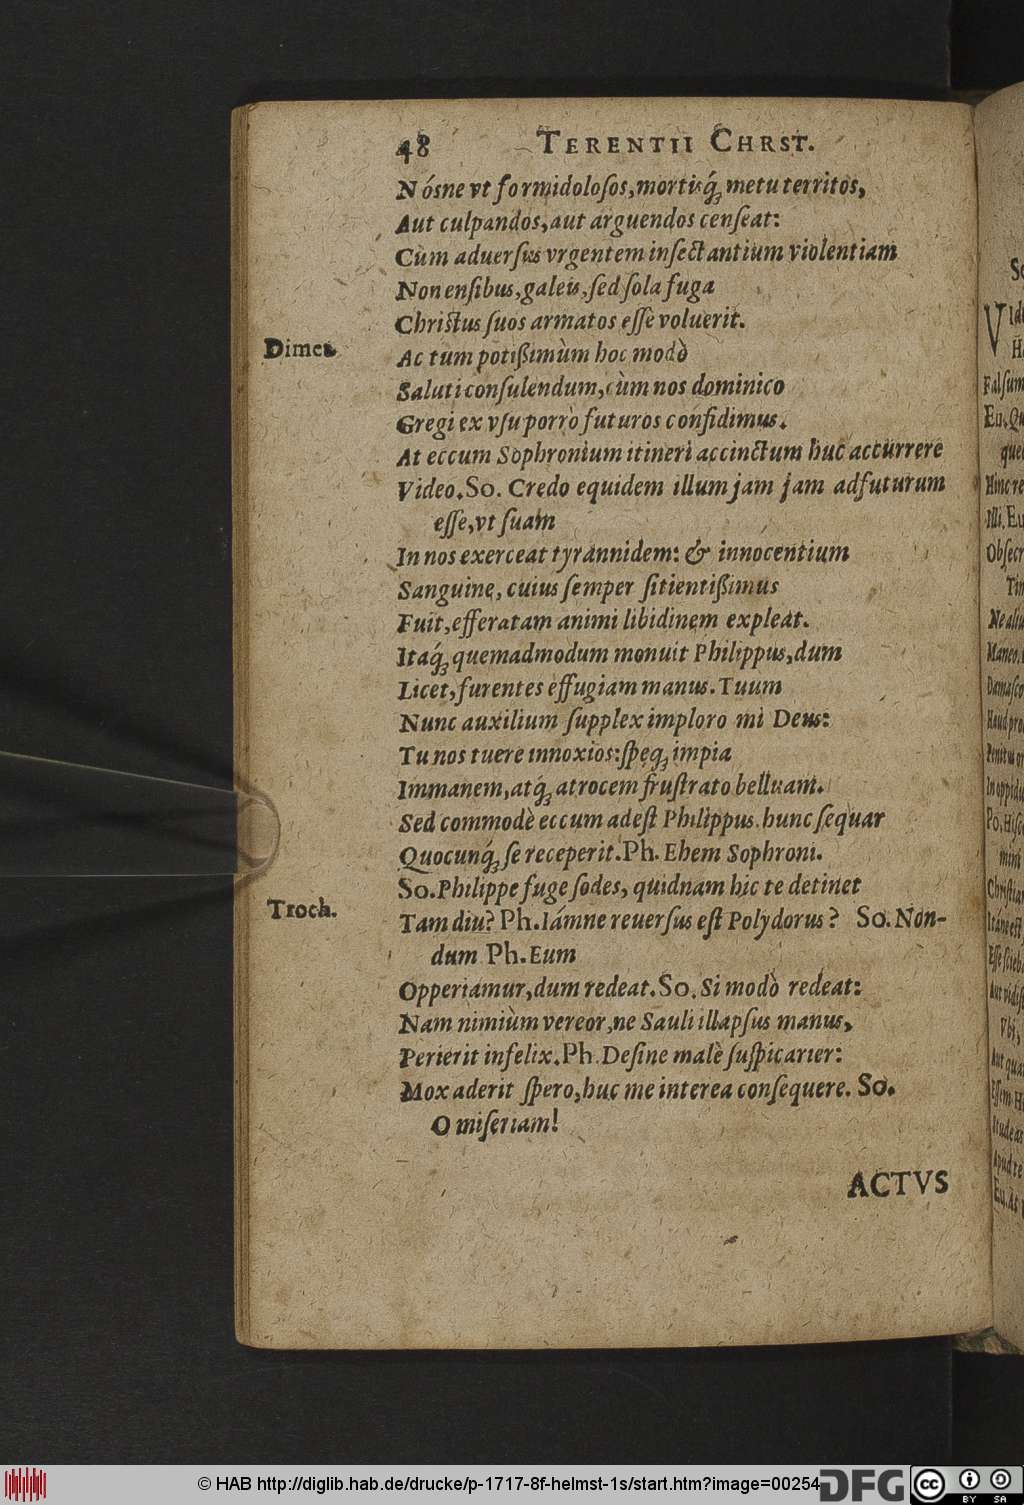 48 TERENTII CHRST.
Nósne vt formidolosos, mortisq́; metu territos,
Aut culpandos, aut arguendos censeat:
Cùm aduersus vrgentem insectantium violentiam
Non ensibus, galeis, sed sola fuga
Christus suos armatos esse voluerit.
Dimet.
Ac tum potißimùm hoc modò
Saluti consulendum, cùm nos dominico
Gregi ex vsu porrò futuros confidimus.
At eccum Sophronium itineri accinctum huc accurrere
Video. So. Credo equidem illum jam jam adfuturum
esse, vt suam
In nos exerceat tyrannidem: & innocentium
Sanguine, cuius semper sitientißimus
Fuit, efferatam animi libidinem expleat.
Itaq́; quemadmodum monuit Philippus, dum
Licet, furentes effugiam manus. Tuum
Nunc auxilium supplex imploro mi Deus:
Tu nos tuere innoxios: spęq; impia
Immanem, atq́; atrocem frustrato belluam.
Sed commodè eccum adest Philippus. hunc sequar
Quocunq́; se receperit. Ph. Ehem Sophroni.
So. Philippe fuge sodes, quidnam hic te detinet
Troch.
Tam diu? Ph. Iámne reuersus est Polydorus? So. Non-
dum Ph. Eum
Opperiamur, dum redeat. So. Si modò redeat:
Nam nimiùm vereor, ne Sauli illapsus manus,
Perierit infelix. Ph. Desine malè suspicarier:
Mox aderit spero, huc me interea consequere. So.
O miseriam!
ACTVS
© HAB http://diglib.hab.de/drucke/p-1717-8f-helmst-1s/start.htm?image=00254
DFG
cc BY SA